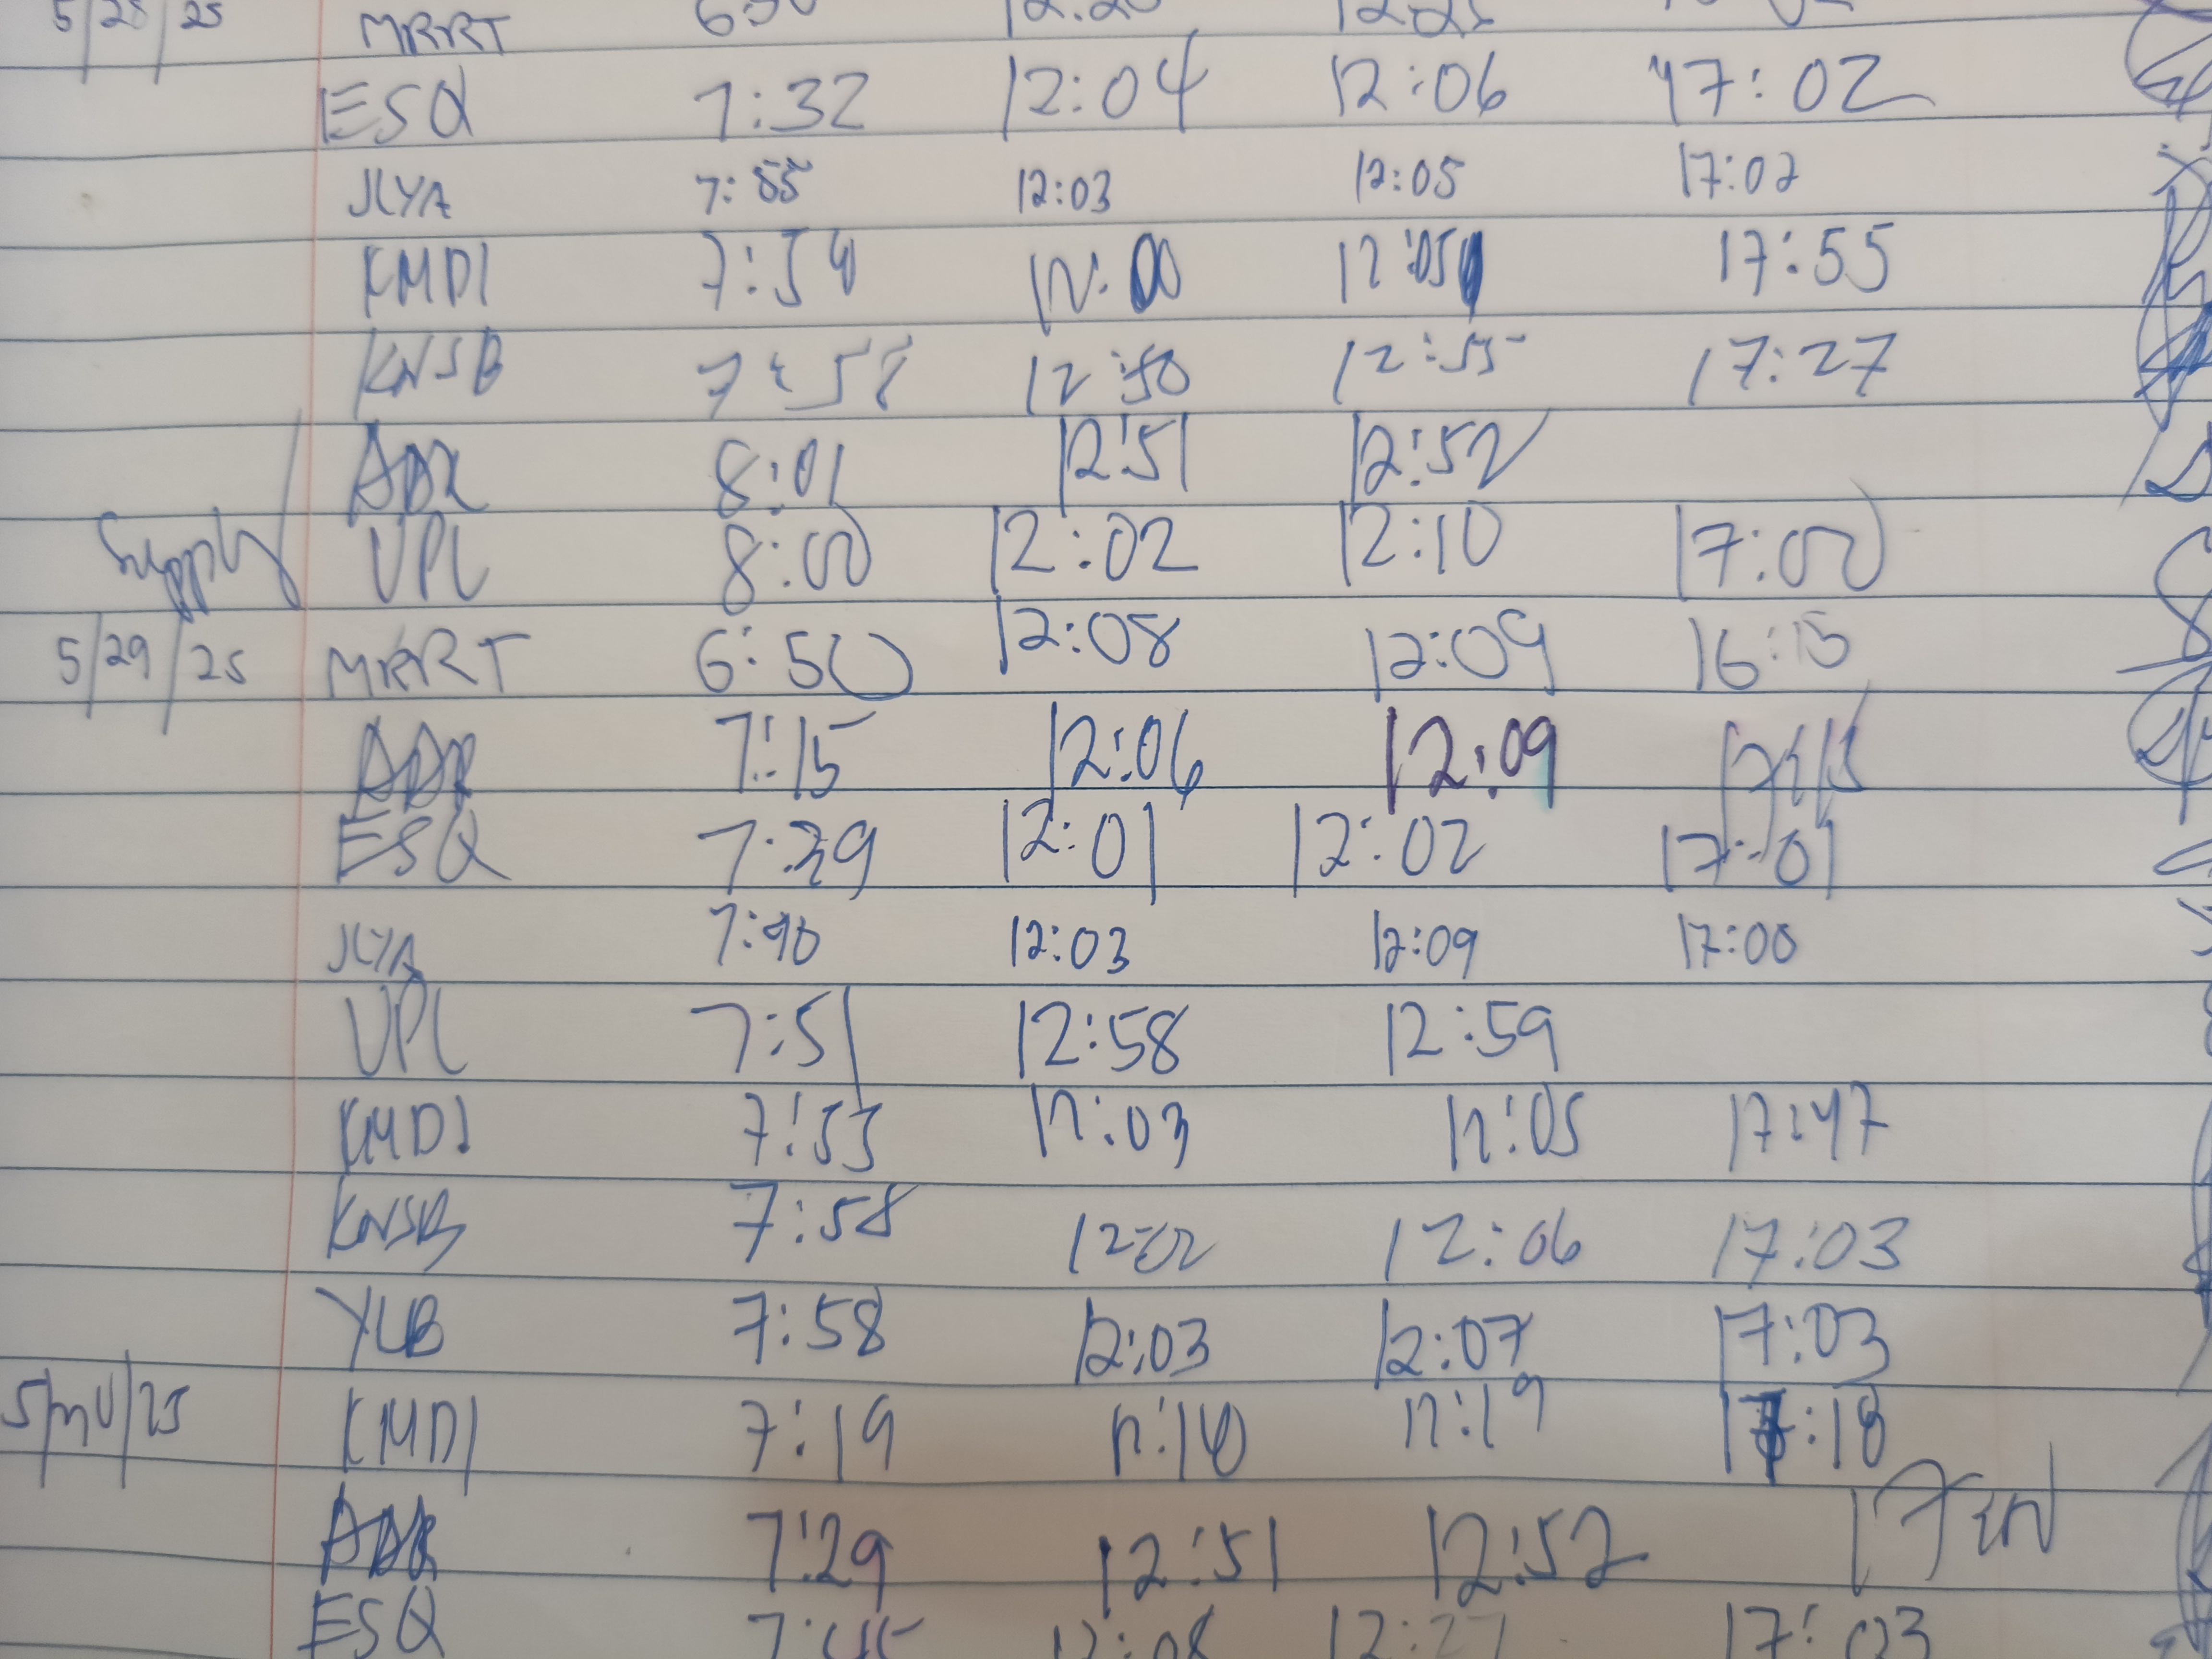 5/28/25 MRRT
ESQ 7:32 12:04 12:06 17:02
JLYA 7:55 12:03 12:05 17:02
KMDI 7:54 12:00 12:05 17:55
KNSB 7:58 12:50 12:55 17:27
ADR 8:01 12:51 12:52
Supply UPL 8:00 12:02 12:10 17:00
5/29/25 MRRT 6:50 12:08 12:09 16:15
ADR 7:15 12:06 12:09
ESQ 7:39 12:01 12:02 17:01
JLYA 7:40 12:03 12:09 17:00
UPL 7:51 12:58 12:59
KMDI 7:53 12:03 12:05 17:47
KNSB 7:58 12:02 12:06 17:03
YLB 7:58 12:03 12:07 17:03
KMDI 7:19 12:10 12:19 17:18
ADR 7:29 12:51 12:52
ESQ 12:08 12:27 17:03